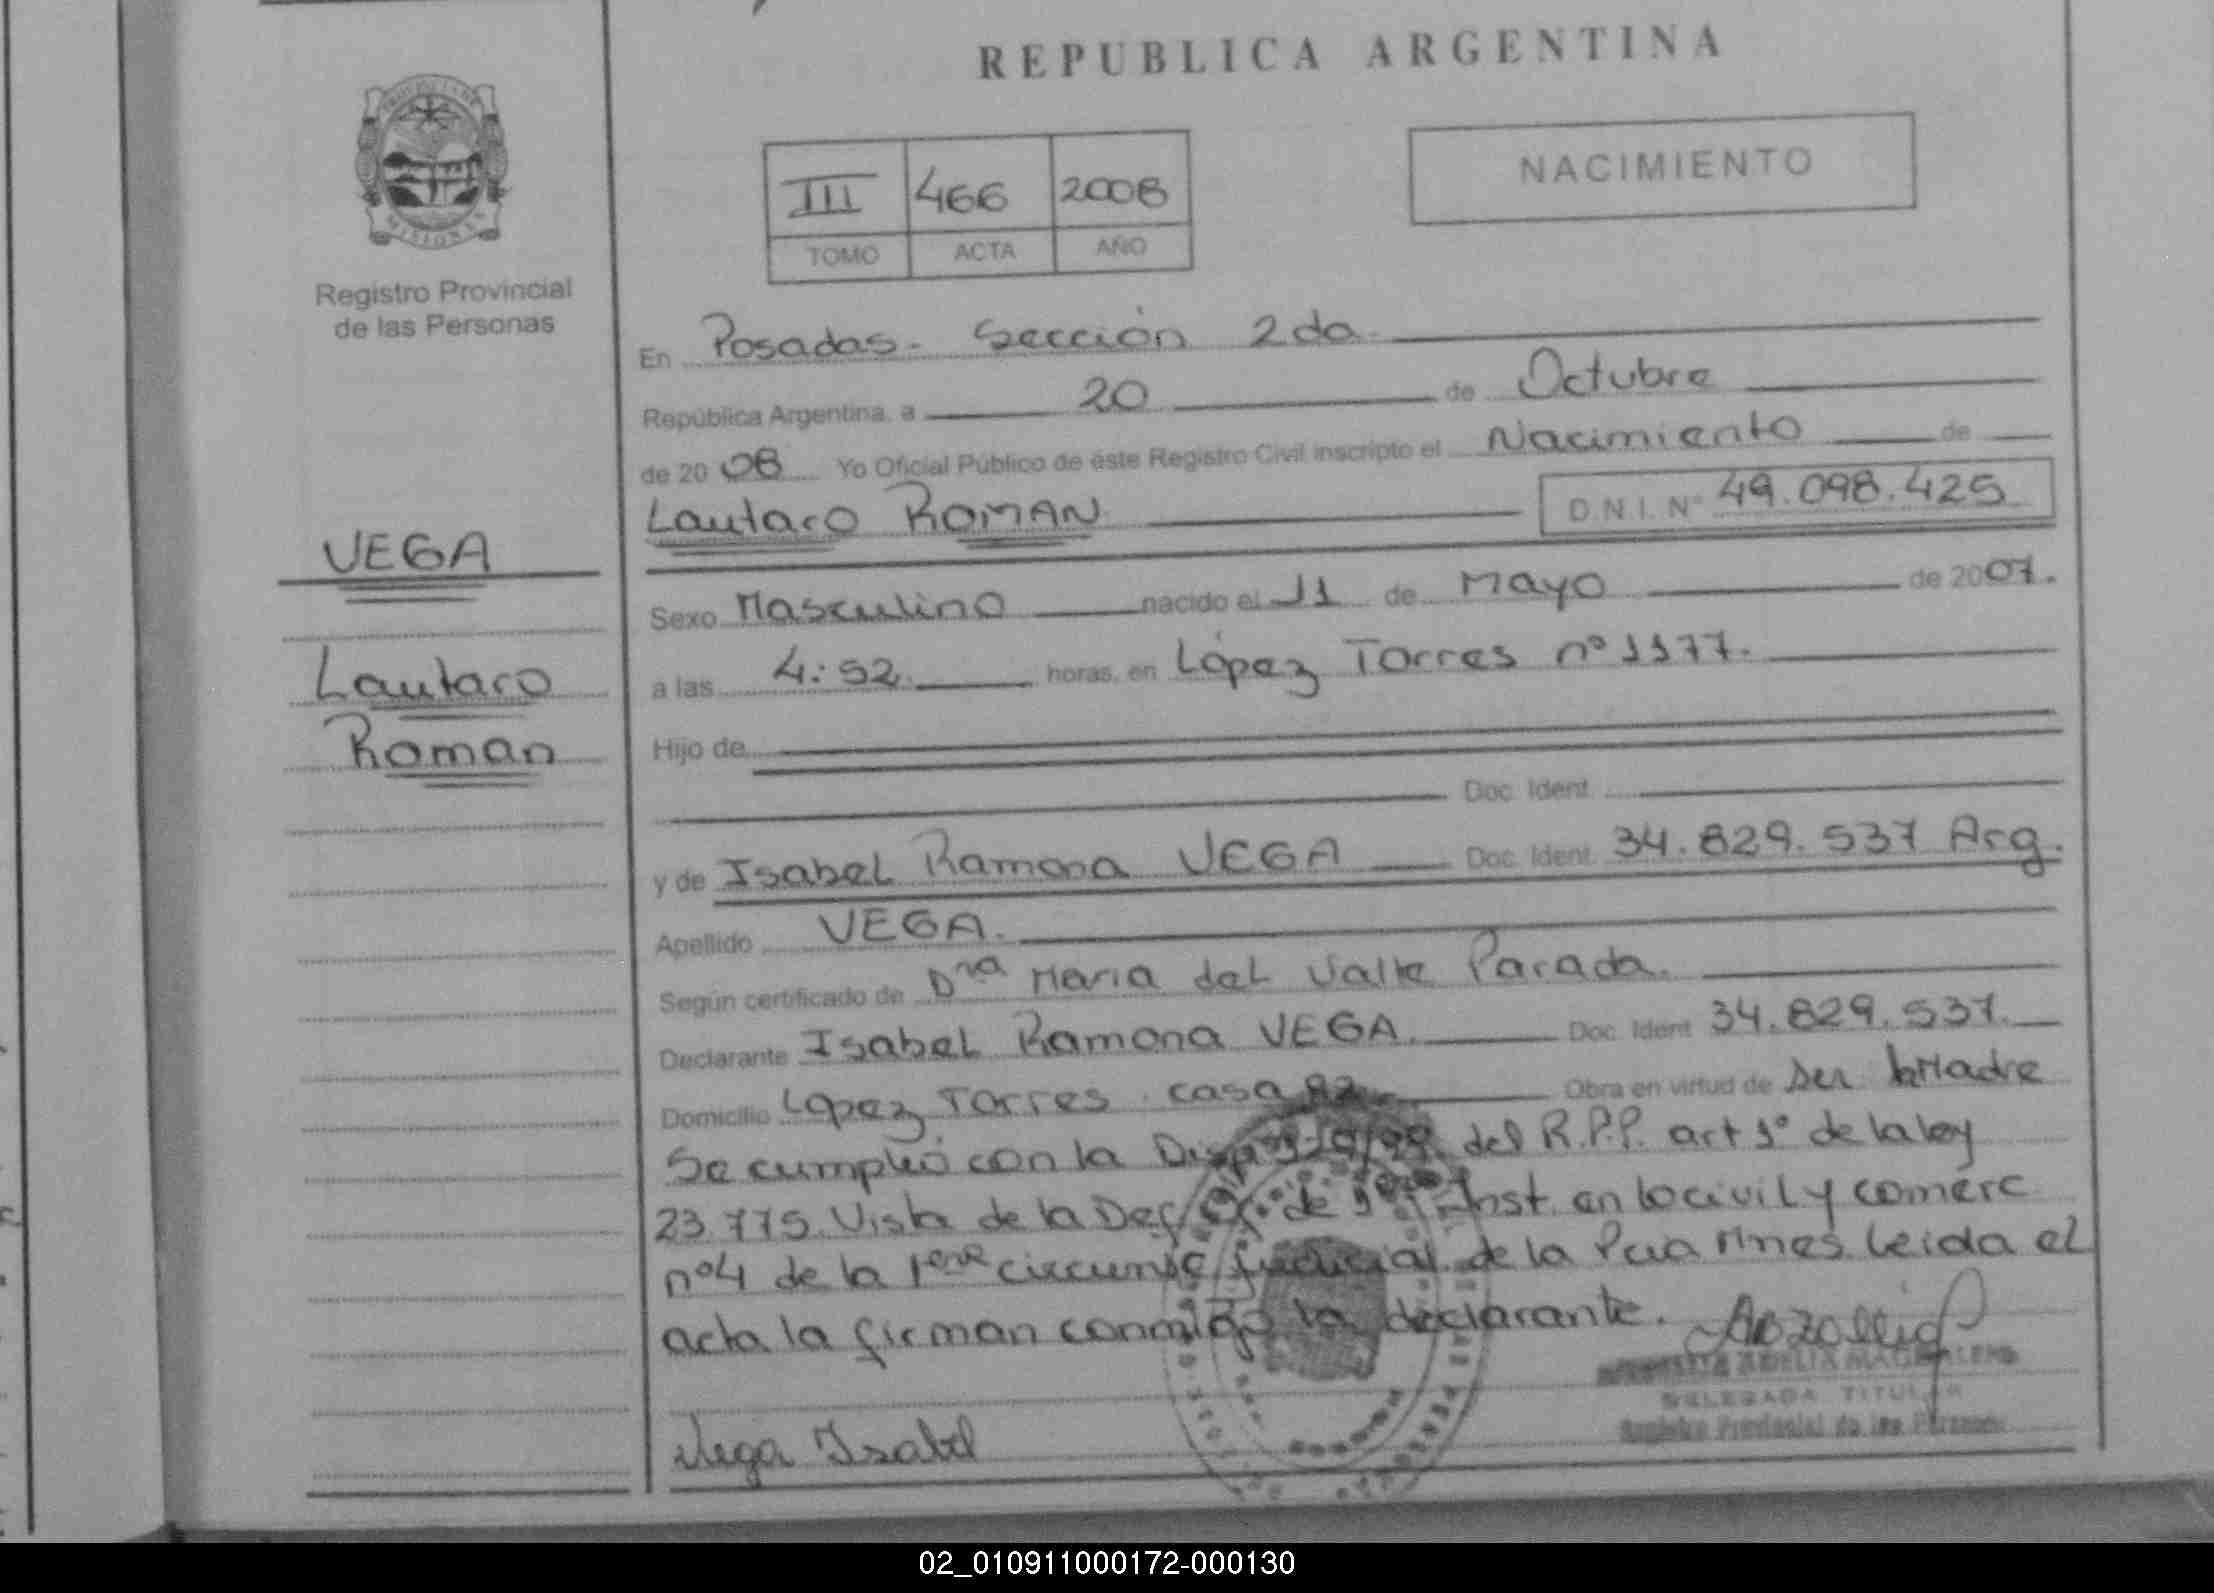 REPUBLICA ARGENTINA
PROVINCIA DE
MISIONES
Registro Provincial
de las Personas
III 466 2008
TOMO ACTA AÑO
NACIMIENTO
En Posadas. Sección 2da.
República Argentina, a 20 de Octubre
de 20 08 Yo Oficial Público de éste Registro Civil inscripto el Nacimiento de
Lautaro ROMAN D.N.I. Nº 49.098.425
VEGA
Lautaro
Roman
Sexo Masculino nacido el 11 de Mayo de 2007.
a las 4:52 horas, en López Torres nº 1177.
Hijo de
Doc. Ident.
y de Isabel Ramona VEGA Doc. Ident. 34.829.537 Arg.
Apellido VEGA.
Según certificado de Dra Maria del Valle Parada.
Declarante Isabel Ramona VEGA. Doc. Ident 34.829.537.
Domicilio López Torres casa 82 Obra en virtud de ser la Madre
Se cumplió con la del R.P.P. art 1º de la ley
23.775. Vista de la Def. de Inst. en lo civil y comerc
nº4 de la 1era circunsc judicial de la Pcia Mnes. Leida el
acta la firman conmigo la declarante.
DELEGADA TITULAR
Registro Provincial de las Personas
Vega Isabel
02_010911000172-000130